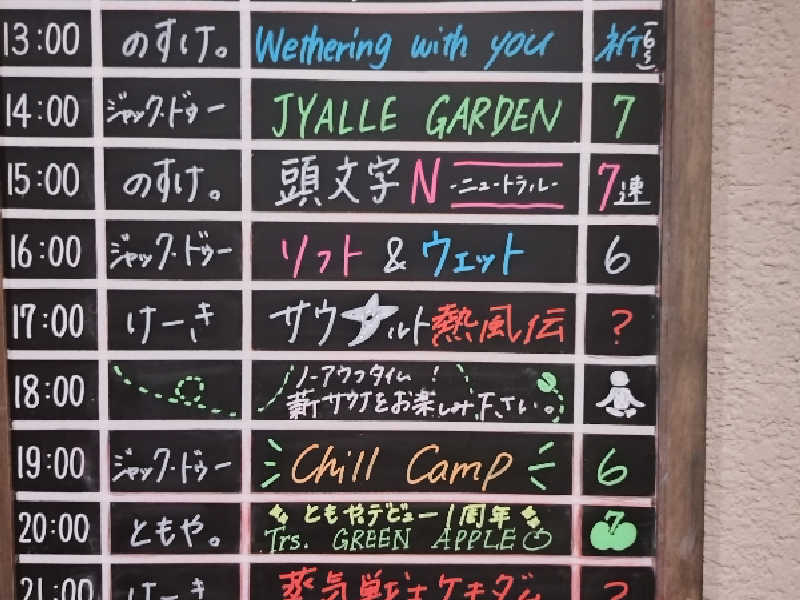 13:00 のすけ。 Wethering with you 祈(6~)
14:00 ジャック・ドゥー JYALLE GARDEN 7
15:00 のすけ。 頭文字N -ニュートラル- 7連
16:00 ジャック・ドゥー ソフト & ウェット 6
17:00 けーき サウナルト熱風伝 ?
18:00 ノーアウフタイム!
薪サウナをお楽しみ下さい。
19:00 ジャック・ドゥー Chill Camp 6
20:00 ともや。 ともやデビュー1周年 7
Trs. GREEN APPLE
21:00 けーき 蒸気戦士ケキダン ?